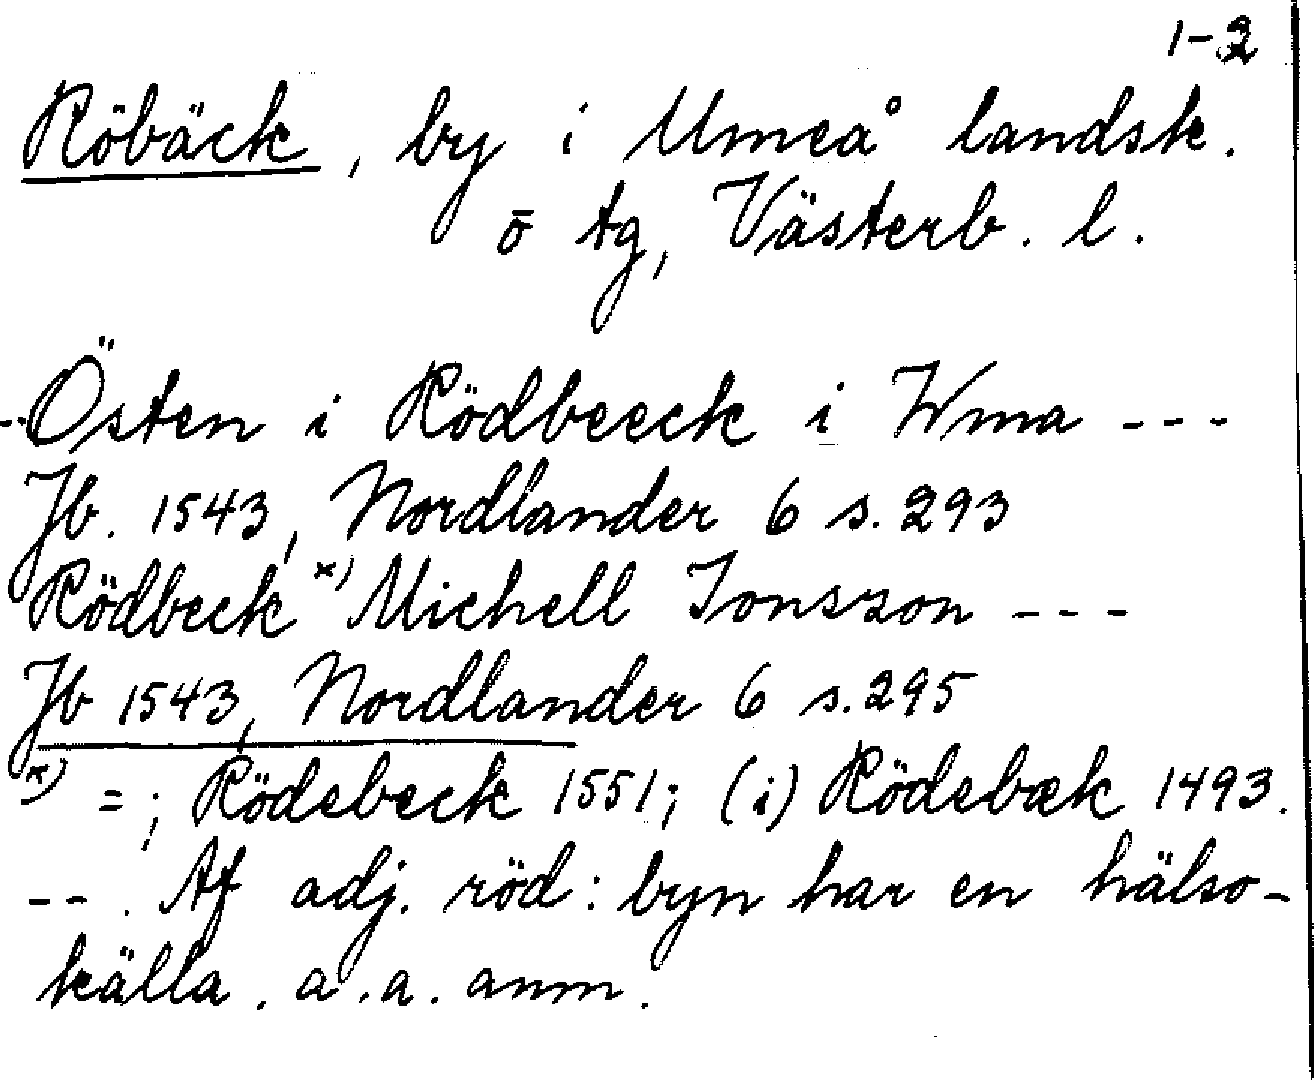 1-2
Röbäck, by i Umeå landsk.
ö tg, Västerb. l.
--Östen i Rödbeeck i Wma ---
Jb. 1543, Nordlander 6 s. 293
Rödbeck x) Michell Jonsson ---
Jb 1543, Nordlander 6 s. 295
x) = ; Rödebeck 1551; (i) Rödebæk 1493.
--. Af adj. röd: byn har en hälso-
källa. a.a. anm.